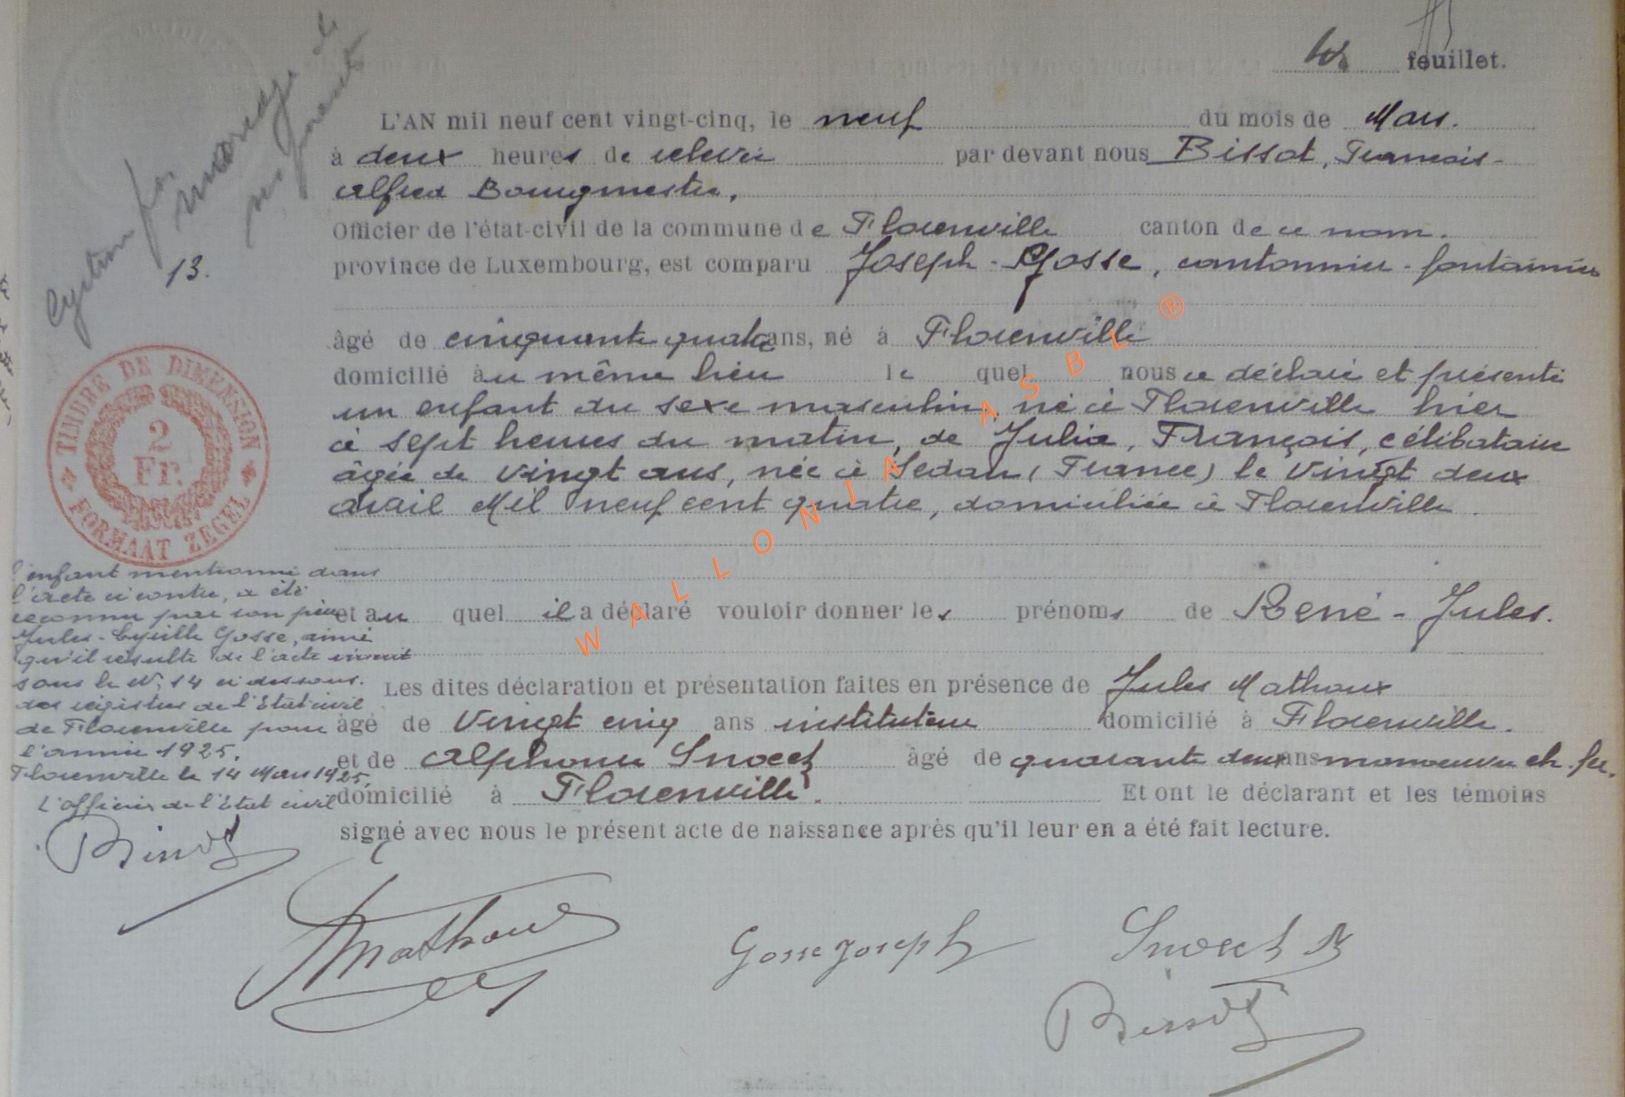 feuillet.
L'AN mil neuf cent vingt-cinq, le neuf du mois de Mars.
à deux heures de relevée par devant nous Bissot, François-
Alfred Bourgmestre,
Officier de l'état-civil de la commune de Florenville canton de ce nom.
province de Luxembourg, est comparu Joseph - Gosse, cantonnier - fontainier
âgé de cinquante quatre ans, né à Florenville
domicilié au même lieu le quel nous a déclaré et présenté
un enfant du sexe masculin, né à Florenville hier
à sept heures du matin, de Julia, François, célibataire
âgée de vingt ans, née à Sedan (France) le vingt deux
avril Mil neuf cent quatre, domiciliée à Florenville.
et au quel il a déclaré vouloir donner les prénoms de René - Jules.
Les dites déclaration et présentation faites en présence de Jules Mathoux
âgé de vingt cinq ans instituteur domicilié à Florenville.
et de Alphonse Snoeck âgé de quarante deux ans manoeuvre ch. fer.
domicilié à Florenville. Et ont le déclarant et les témoins
signé avec nous le présent acte de naissance après qu'il leur en a été fait lecture.
mariage de
ses parents
13.
TIMBRE DE DIMENSION
2
Fr.
FORMAAT ZEGEL
l'enfant mentionné dans
l'acte ci contre, a été
reconnu par son père
Jules - Cyrille Gosse, ainsi
qu'il résulte de l'acte inscrit
sous le N° 14 ci dessous.
des registres de l'Etat civil
de Florenville pour
l'année 1925.
Florenville le 14 Mars 1925,
L'officier de l'Etat civil
Bissot
Mathoux
Gosse Joseph
Snoeck
Bissot
WALLONIA ASBL ®